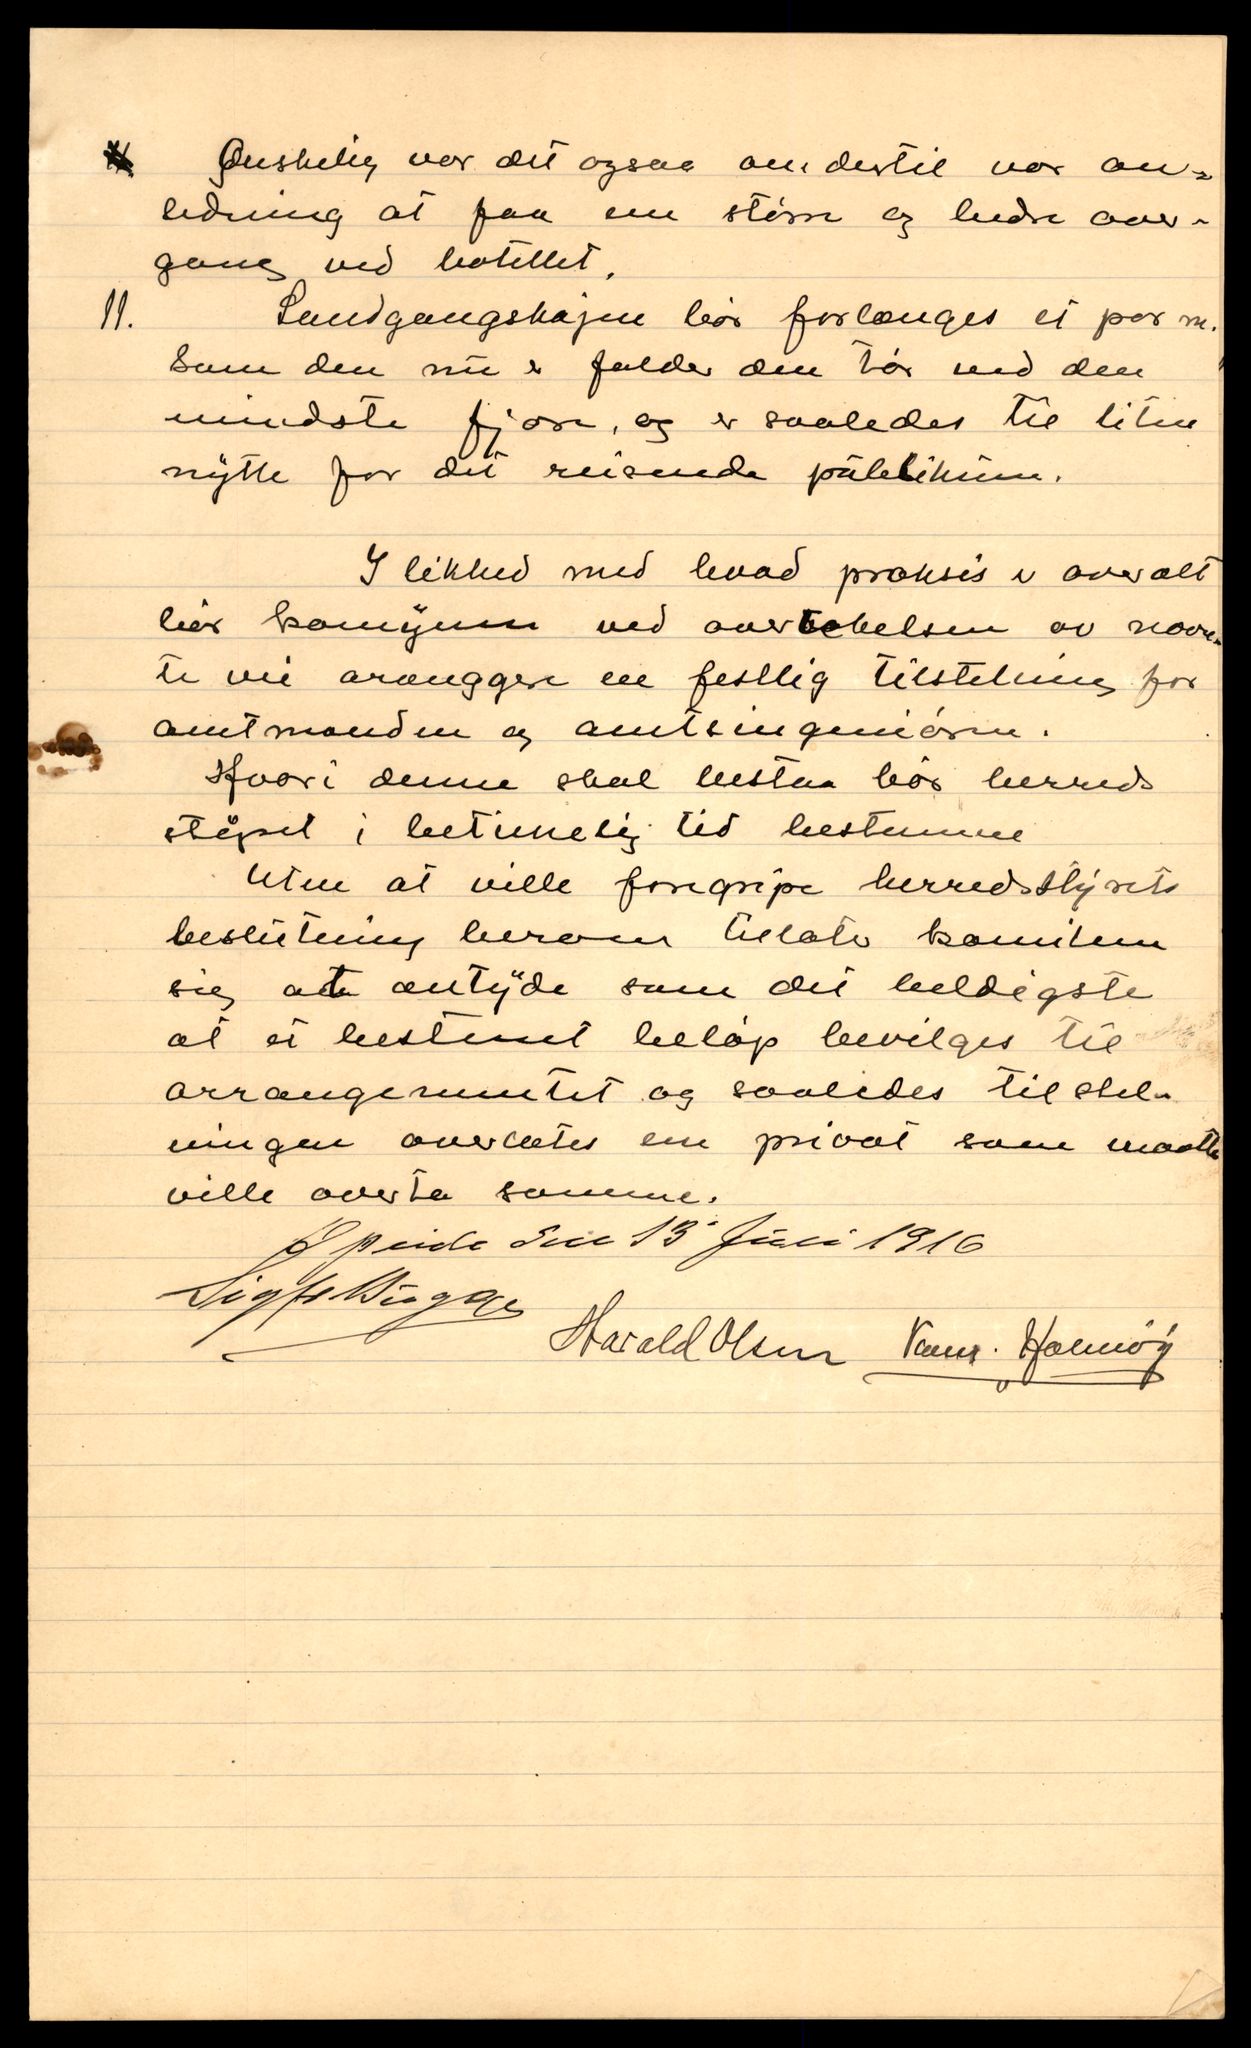 Ønskelig var det ogsaa om dertil var an=
ledning at faa en større og bedre over-
gang ved hotellet.
11. Landgangskajen bør forlænges et par m.
Som den nu er falder den tør ved den
mindste fjære, og er saaledes til liten
nytte for det reisende publikum.
I likhed med hvad praksis er overalt
bør komunen ved overtakelsen av nævn-
te vei arranggere en festlig tilstelning for
amtmanden og amtsingeniøren.
Hvori denne skal bestaa bør herreds
styret i betimelig tid bestemme
Uten at ville foregripe herredsstyrets
beslutning herom tillater komiteen
sig at antyde som det heldigste
at et bestemt beløp bevilges til
arrangementet og saaledes tilstel-
ningen overlates en privat som maatte
ville overta samme.
den 13 Juni 1916
Sigf Bugge
Harald Olsen Holmøy